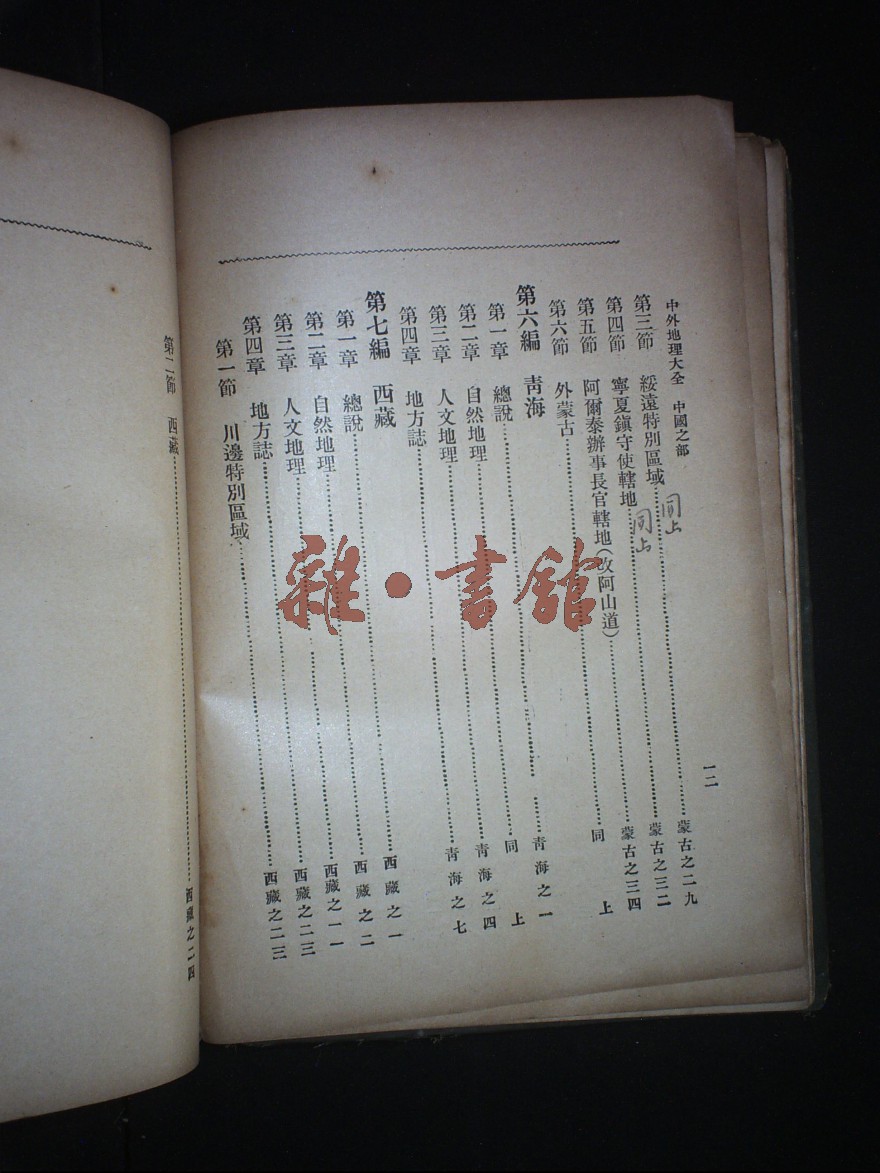 中外地理大全 中國之部 一二
第三節 綏遠特別區域 同上 蒙古之二九
第四節 寧夏鎮守使轄地 同上 蒙古之三二
第五節 阿爾泰辦事長官轄地(改阿山道) 蒙古之三四
第六節 外蒙古 同上
第六編 青海
第一章 總說 青海之一
第二章 自然地理 同上
第三章 人文地理 青海之四
第四章 地方誌 青海之七
第七編 西藏
第一章 總說 西藏之一
第二章 自然地理 西藏之二
第三章 人文地理 西藏之一一
第四章 地方誌 西藏之二三
第一節 川邊特別區域 西藏之二三
第二節 西藏 西藏之二四
雜·書館